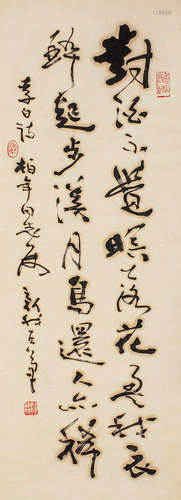 對酒不覺暝落花盈我衣
醉起步溪月鳥還人亦稀
李白詩 柏年同志屬